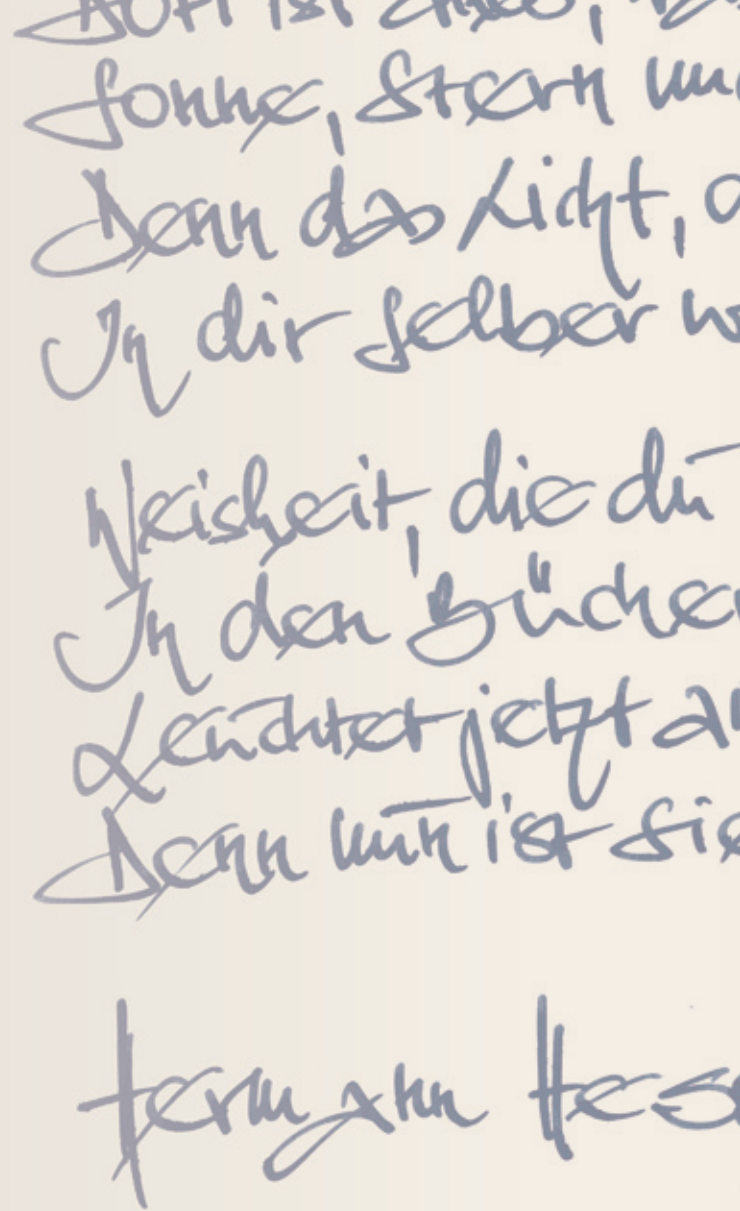 Dort ist alles,
Sonne, Stern un
Denn das Licht,
In dir selber w
Weisheit, die du
In den Bücher
Leuchtet jetzt a
Denn nun ist sie
Hermann Hess